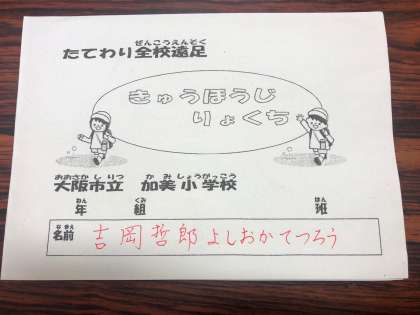 ぜんこうえんそく
たてわり全校遠足
きゅうほうじ
りょくち
おおさか しりつ かみ しょうがっこう
大阪市立 加美小学校
ねん くみ はん
年 組 班
なまえ
名前 吉岡哲郎 よしおかてつろう